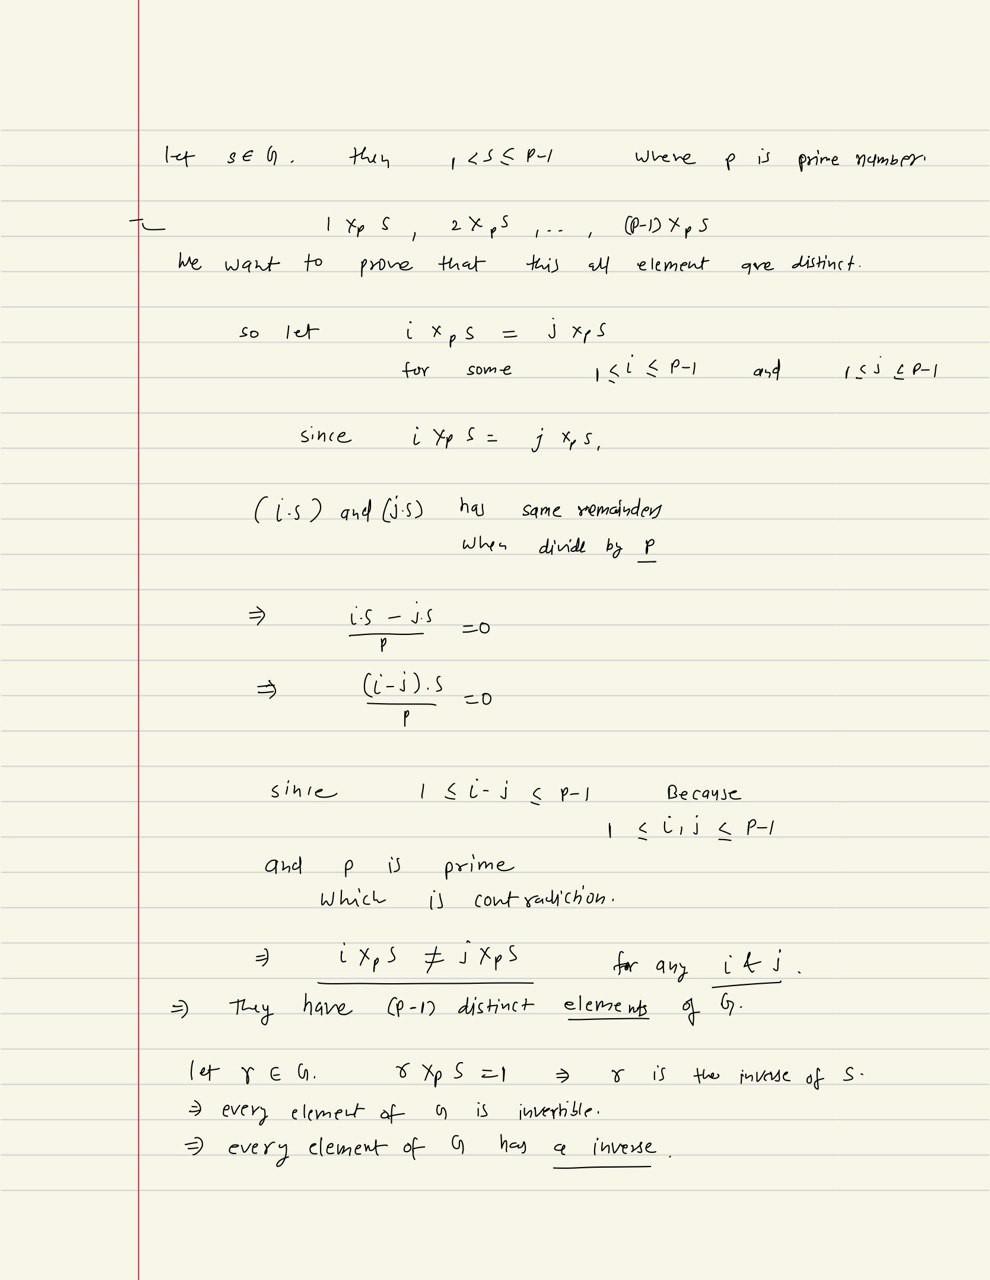 let s ∈ G. then 1 < s ≤ p-1 where p is prime number.
1 ×p s , 2 ×p s , ... , (p-1) ×p s
We want to prove that this all element are distinct.
so let i ×p s = j ×p s
for some 1 ≤ i ≤ p-1 and 1 ≤ j ≤ p-1
since i ×p s = j ×p s,
(i.s) and (j.s) has same remainders
when divide by p
⇒ i.s - j.s / p = 0
⇒ (i-j).s / p = 0
since 1 ≤ i-j ≤ p-1 Because
1 ≤ i, j ≤ p-1
and p is prime
which is contradiction.
⇒ i ×p s ≠ j ×p s for any i & j.
⇒ They have (p-1) distinct elements of G.
let r ∈ G. r ×p s = 1 ⇒ r is the inverse of s.
⇒ every element of G is invertible.
⇒ every element of G has a inverse.